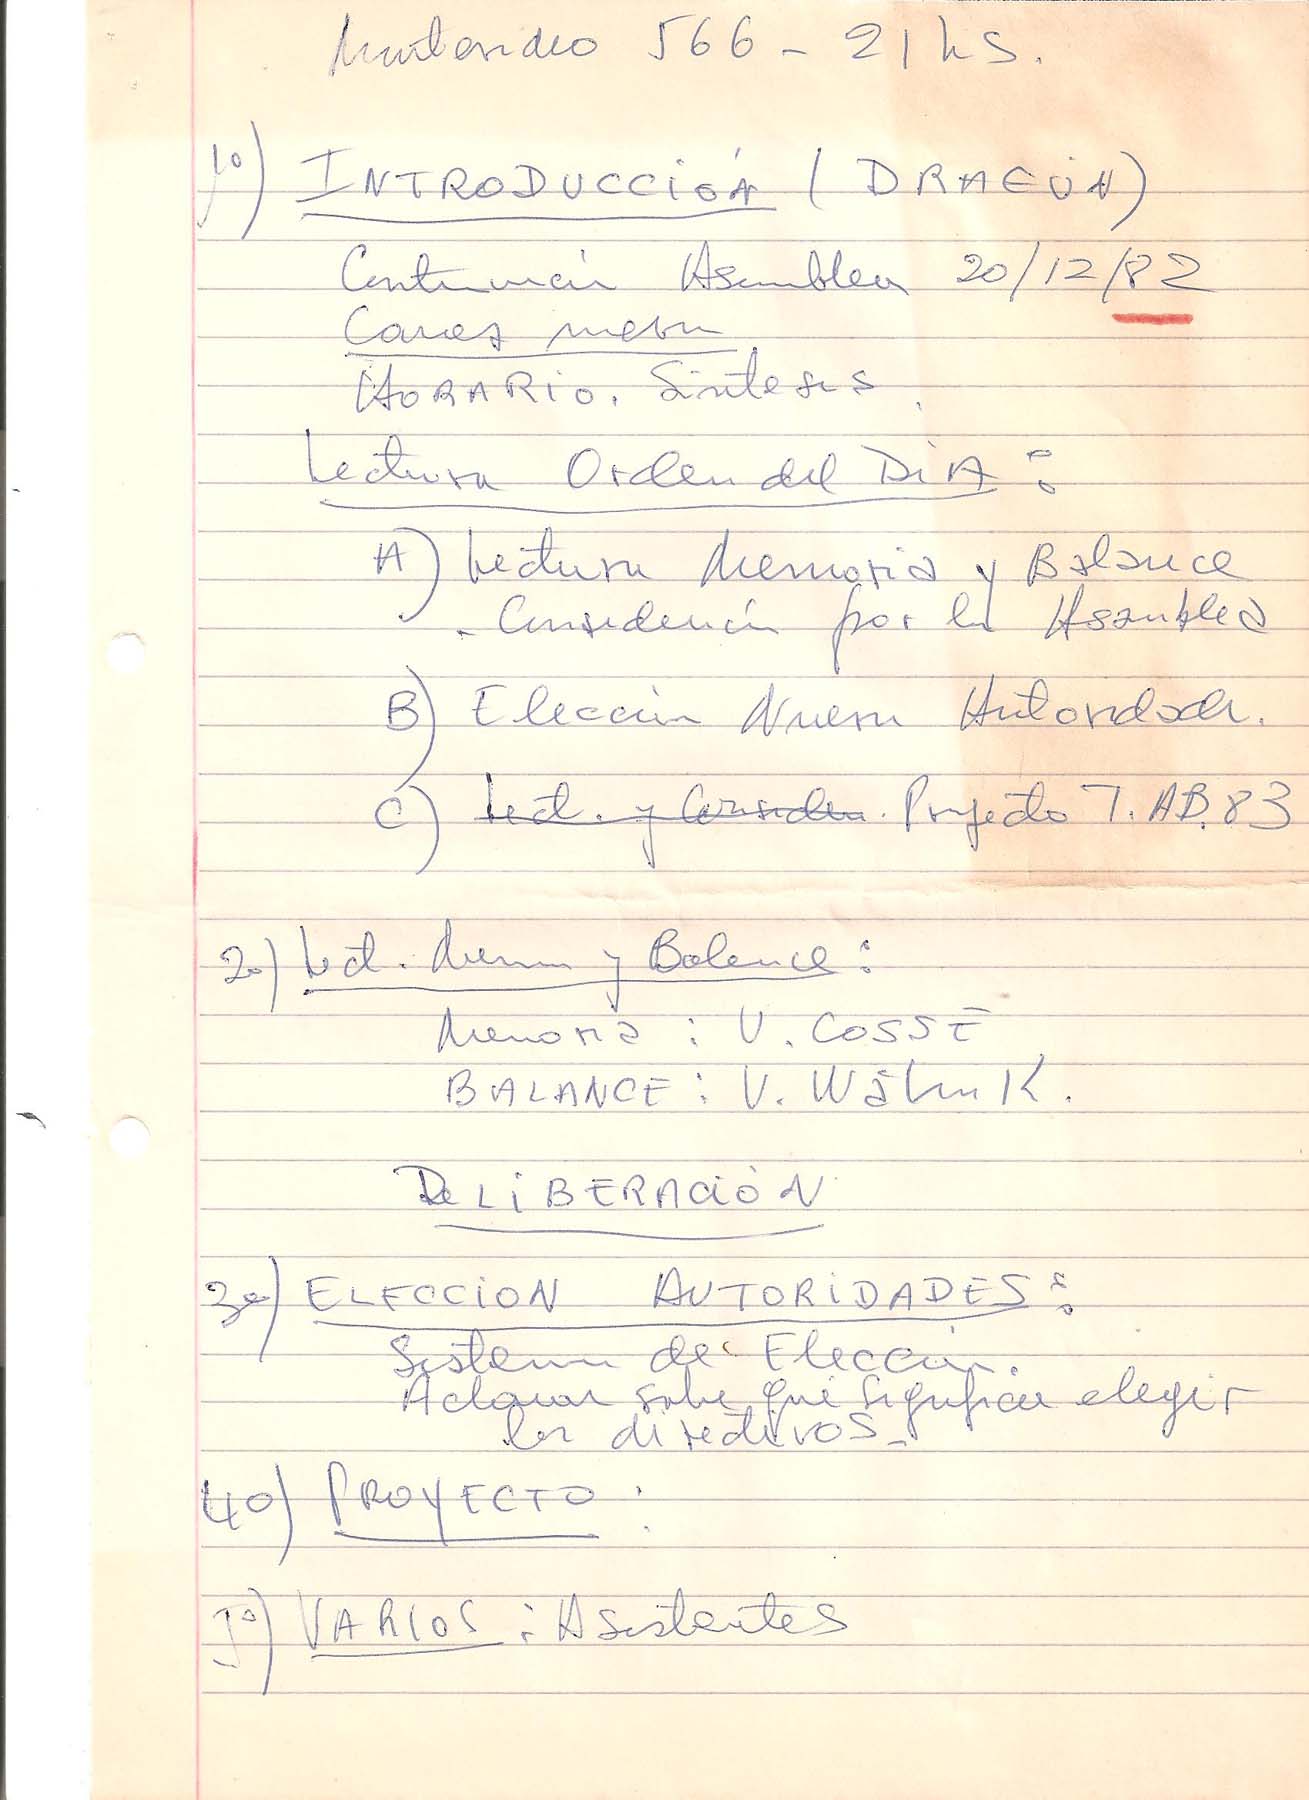 Montevideo 566 - 21 hs.
1º) INTRODUCCIÓN ( DRAGÚN)
Continuación Asamblea 20/12/82
HORARIO. Síntesis.
Lectura Orden del DIA :
A) Lectura Memoria y Balance
- Consideración por la Asamblea
B) Elección Nuevas Autoridades.
C) Lect. y Consider. Proyecto T. AB. 83
2º) Lect. Mem y Balance :
Memoria : V. COSSE
BALANCE : V.
DELIBERACIÓN
3º) ELECCION AUTORIDADES :
Sistema de Elección.
Aclarar sobre qué significa elegir
los directivos -
4º) PROYECTO :
5º) VARIOS : Asistentes